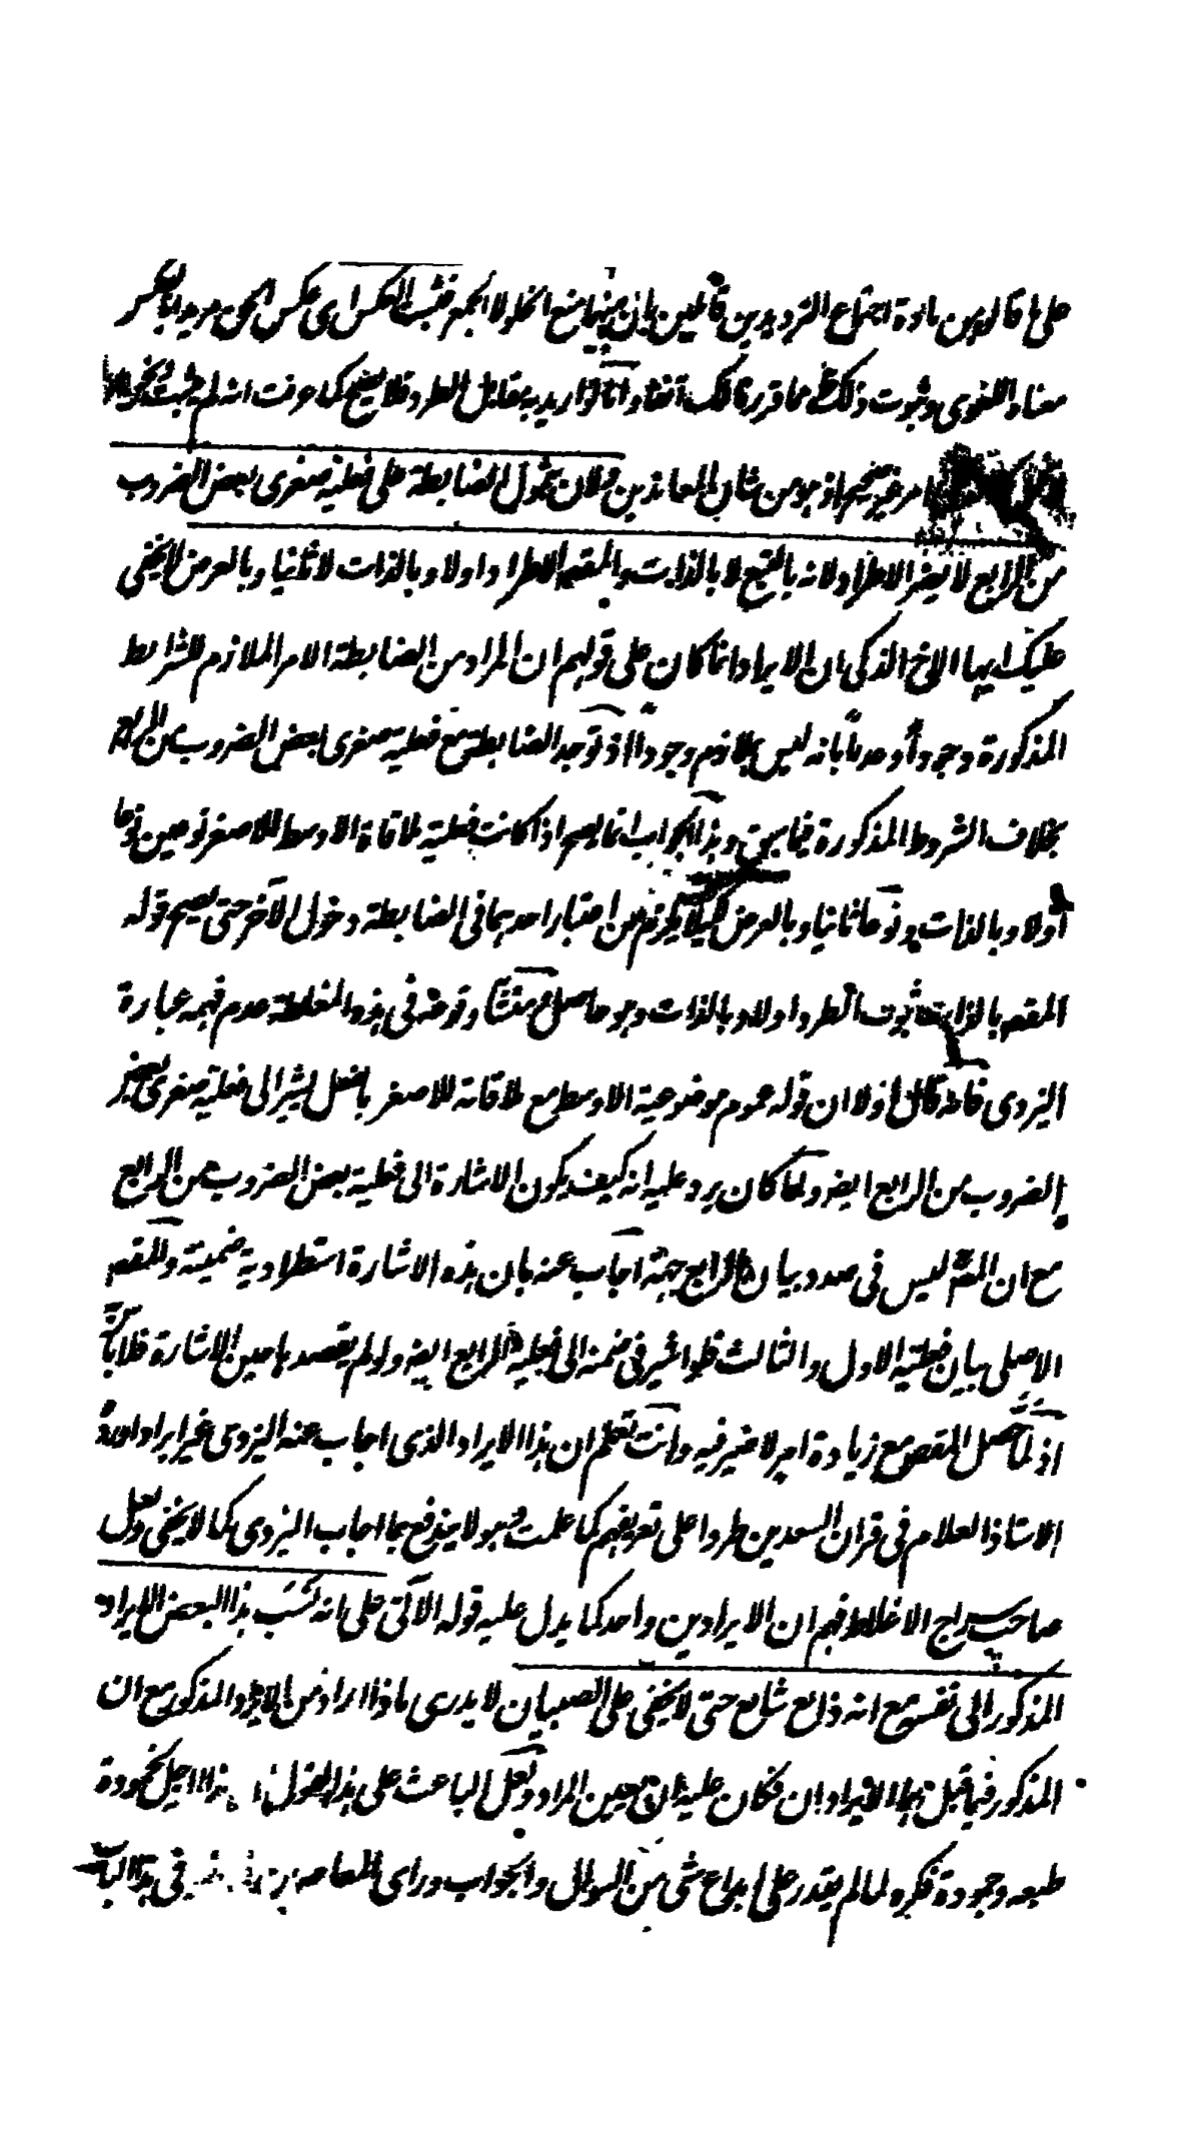 على ما قالوا من مادة اجتماع الترديدين قائلين بان بينهما منع الخلو لا الجمع فثبت العكس اى عكس الحق مريدا بالعكس
معناه اللغوى وثبوت ذلك مما قررنا لك آنفا واما لو اريد به مقابل الطرد فلا يصح كما عرفت انه لم يثبت
امر غير صحيح اذ هو من شان المعاندين ولان شمول الضابطة على فعلية صغرى بعض الضروب
من الرابع لا يضر الاطراد لانه بالتبع لا بالذات والمقصود الاطراد اولا وبالذات لا ثانيا وبالعرض لا يخفى
عليك ايها الاخ الذكى ان الايراد انما كان على قولهم ان المراد من الضابطة الامر الملازم للشرائط
المذكورة وجودا وعدما بانه ليس بملازم وجودا اذ توجد الضابطة مع فعلية صغرى بعض الضروب من الرابع
بخلاف الشروط المذكورة فيما سبق وهذا الجواب انما يصح اذا كانت فعلية ملاقاة الاوسط للاصغر نوعين نوعا
اولا وبالذات ونوعا ثانيا وبالعرض كيلا يلزم من اعتبار احدهما فى الضابطة دخول الآخر حتى يصح قوله
المقصود بالذات ثبوت الطرد اولا وبالذات وهو حاصل منشأ وقوعه فى هذه المغلطة عدم فهمه عبارة
اليزدى فانه قال اولا ان قوله عموم موضوعية الاوسط مع ملاقاته للاصغر بالفعل يشير الى فعلية صغرى بعض
الضروب من الرابع ايضا ولما كان يرد عليه انه كيف يكون الاشارة الى فعلية بعض الضروب من الرابع
مع ان المص ليس فى صدد بيان الرابع جهة اجاب عنه بان هذه الاشارة استطرادية ضمنية والمقصود
الاصلى بيان فعلية الاول والثالث فلو اشير فى ضمنه الى فعلية الرابع ايضا ولو لم يقصد بها حين الاشارة فلا بأس
اذ لما حصل المقصود مع زيادة امر لا ضير فيه وانت تعلم ان هذا الايراد الذى اجاب عنه اليزدى غير ايراد اورده
الاستاذ العلام فى قران السعدين طردا على تعريفهم كما علمت وهو لا يندفع بما اجاب اليزدى كما لا يخفى ولعل
صاحب سراج الاغلاط فهم ان الايرادين واحد كما يدل عليه قوله الآتى على انه نسب هذا البعض الايراد
المذكور الى نفسه مع انه ذائع شايع حتى لا يخفى على الصبيان لا يدرى ماذا اراد من الايراد المذكور مع ان
المذكور فيما قبل ايرادان فكان عليه ان يعين المراد ولعل الباعث على هذا القول جودة
طبعه وجودة فكره لما لم يقدر على ابداع شىء من السوال والجواب وراى المعاصر فى هذا الباب